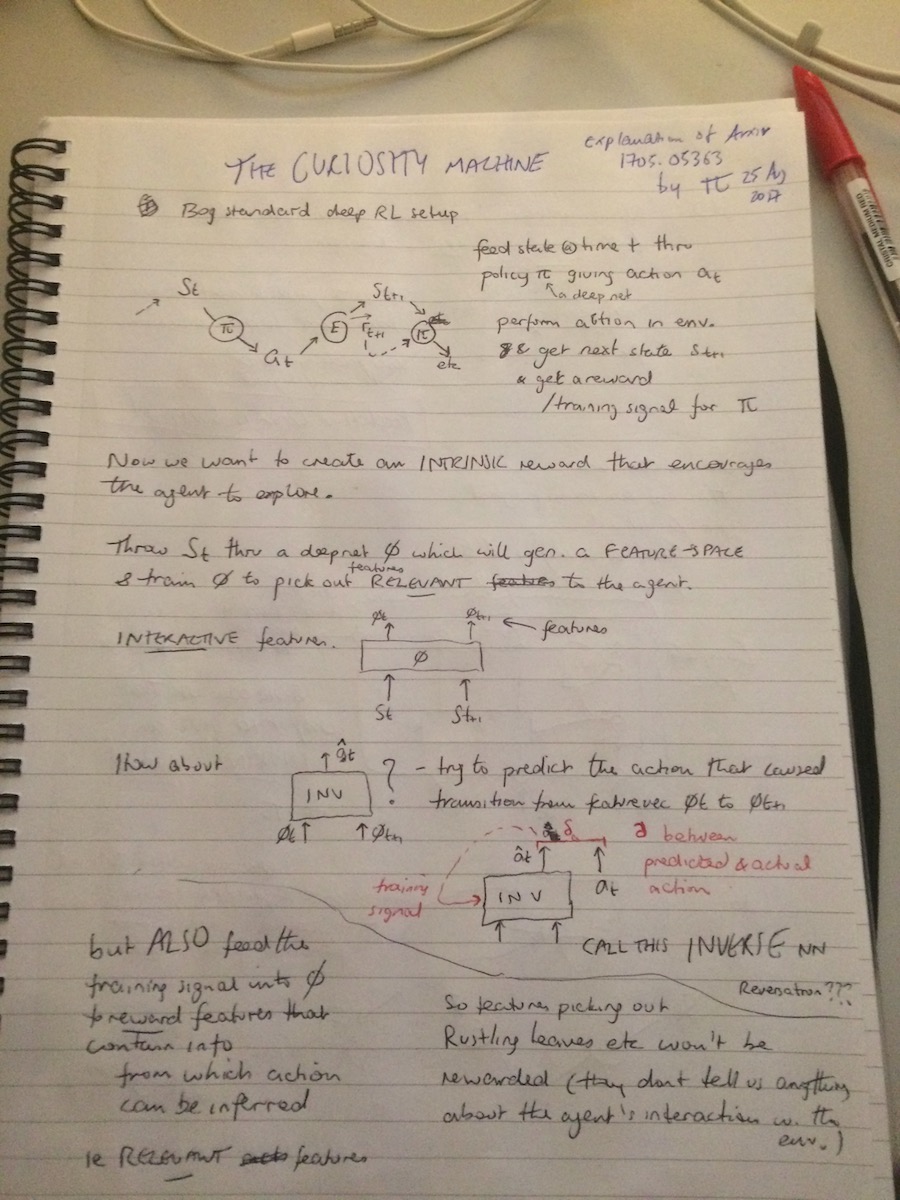 THE CURIOSITY MACHINE
explanation of Arxiv
1705.05363
by π 25 Aug
2017
Bog standard deep RL setup
feed state @ time t thru
policy π giving action at
a deep net
perform action in env.
& get next state St+1
& get a reward
/training signal for π
St
π
at
E
St+1
rt+1
π
etc
Now we want to create an INTRINSIC reward that encourages
the agent to explore.
Throw St thru a deepnet φ which will gen. a FEATURE-SPACE
& train φ to pick out features RELEVANT to the agent.
INTERACTIVE features.
φt φt+1
features
φ
St St+1
How about
ât
INV
φt φt+1
?
- try to predict the action that caused
transition from featurevec φt to φt+1
δa
ât at
INV
training
signal
∂ between
predicted & actual
action
CALL THIS INVERSE NN
Reversatron???
but ALSO feed the
training signal into φ
to reward features that
contain info
from which action
can be inferred
ie RELEVANT features
So features picking out
Rustling leaves etc won't be
rewarded (they dont tell us anything
about the agent's interaction w. the
env.)
CRISTAL MEDIUM RED